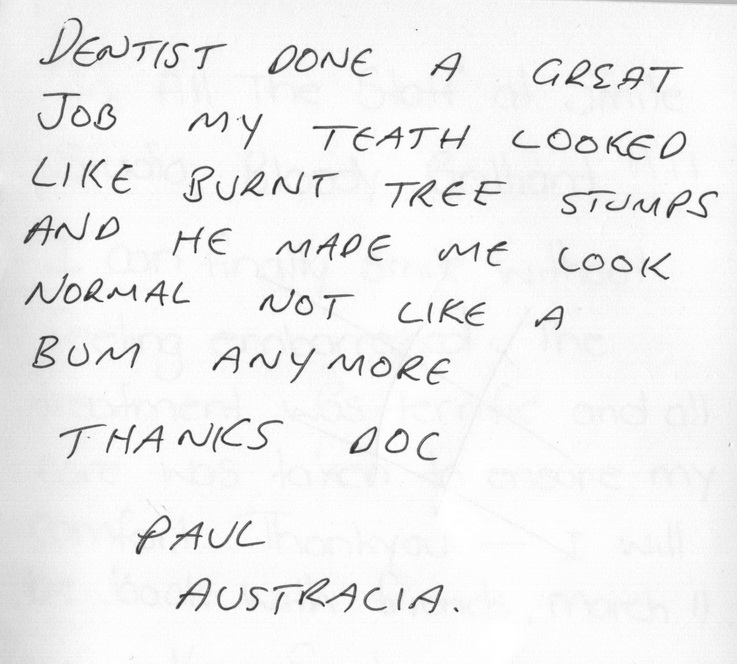 DENTIST DONE A GREAT
JOB MY TEATH LOOKED
LIKE BURNT TREE STUMPS
AND HE MADE ME LOOK
NORMAL NOT LIKE A
BUM ANYMORE
THANKS DOC
PAUL
AUSTRALIA.